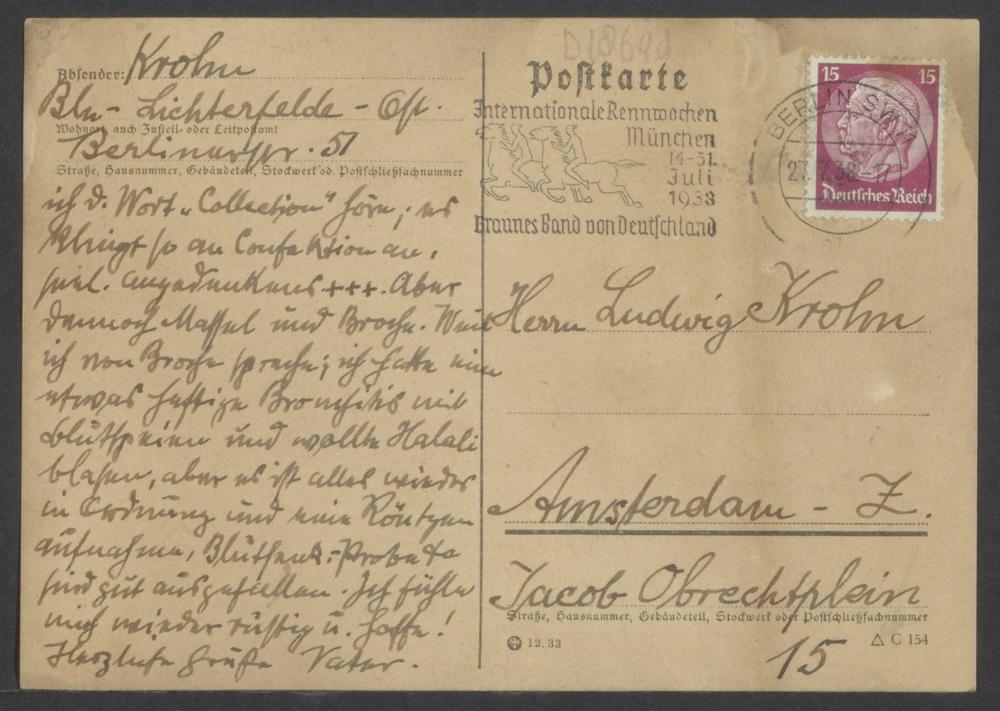 D18691
Absender: Krohn
Bln - Lichterfelde - Ost.
Wohnort, auch Zustell- oder Leitpostamt
Berlinerstr. 51
Straße, Hausnummer, Gebäudeteil, Stockwerk od. Postschließfachnummer
ich d. Wort „Collection" höre; es
klingt so an Confektion an,
sel. Angedenkens +++. Aber
dennoch Massel und Broche. Weil
ich von Broche spreche; ich hatte eine
etwas heftige Bronchitis mit
Blutspeien und wollte Halali
blasen, aber es ist alles wieder
in Ordnung und eine Röntgen
aufnahme, Probe
sind gut ausgefallen. Ich fühle
mich wieder rüstig u. hoffe!
Herzliche Grüße Vater.
Postkarte
Internationale Rennwochen
München
14-31.
Juli
1938
Braunes Band von Deutschland
BERLIN SW
27.7.38
15 15
Deutsches Reich
Herrn Ludwig Krohn
Amsterdam - Z.
Jacob Obrechtplein
Straße, Hausnummer, Gebäudeteil, Stockwerk oder Postschließfachnummer
15
12.33
C 154